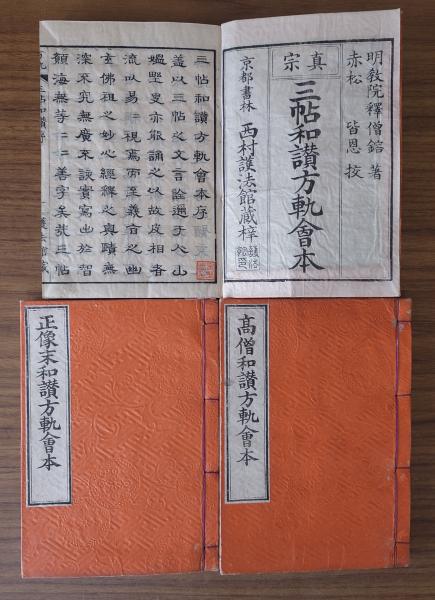 明教院釋僧鎔 著
赤松 皆恩 校
真宗
三帖和讃方軌會本
京都書林 西村護法館藏梓
三帖和讃方軌會本序
盖以三帖之文言詮
亦能誦之以故皮相者
流以易視焉而至義之幽
玄佛祖之妙心經釋之真蹟無
深不究無廣不談實寫出於智
願海無善字矣哉三帖
高僧和讃方軌會本
正像末和讃方軌會本